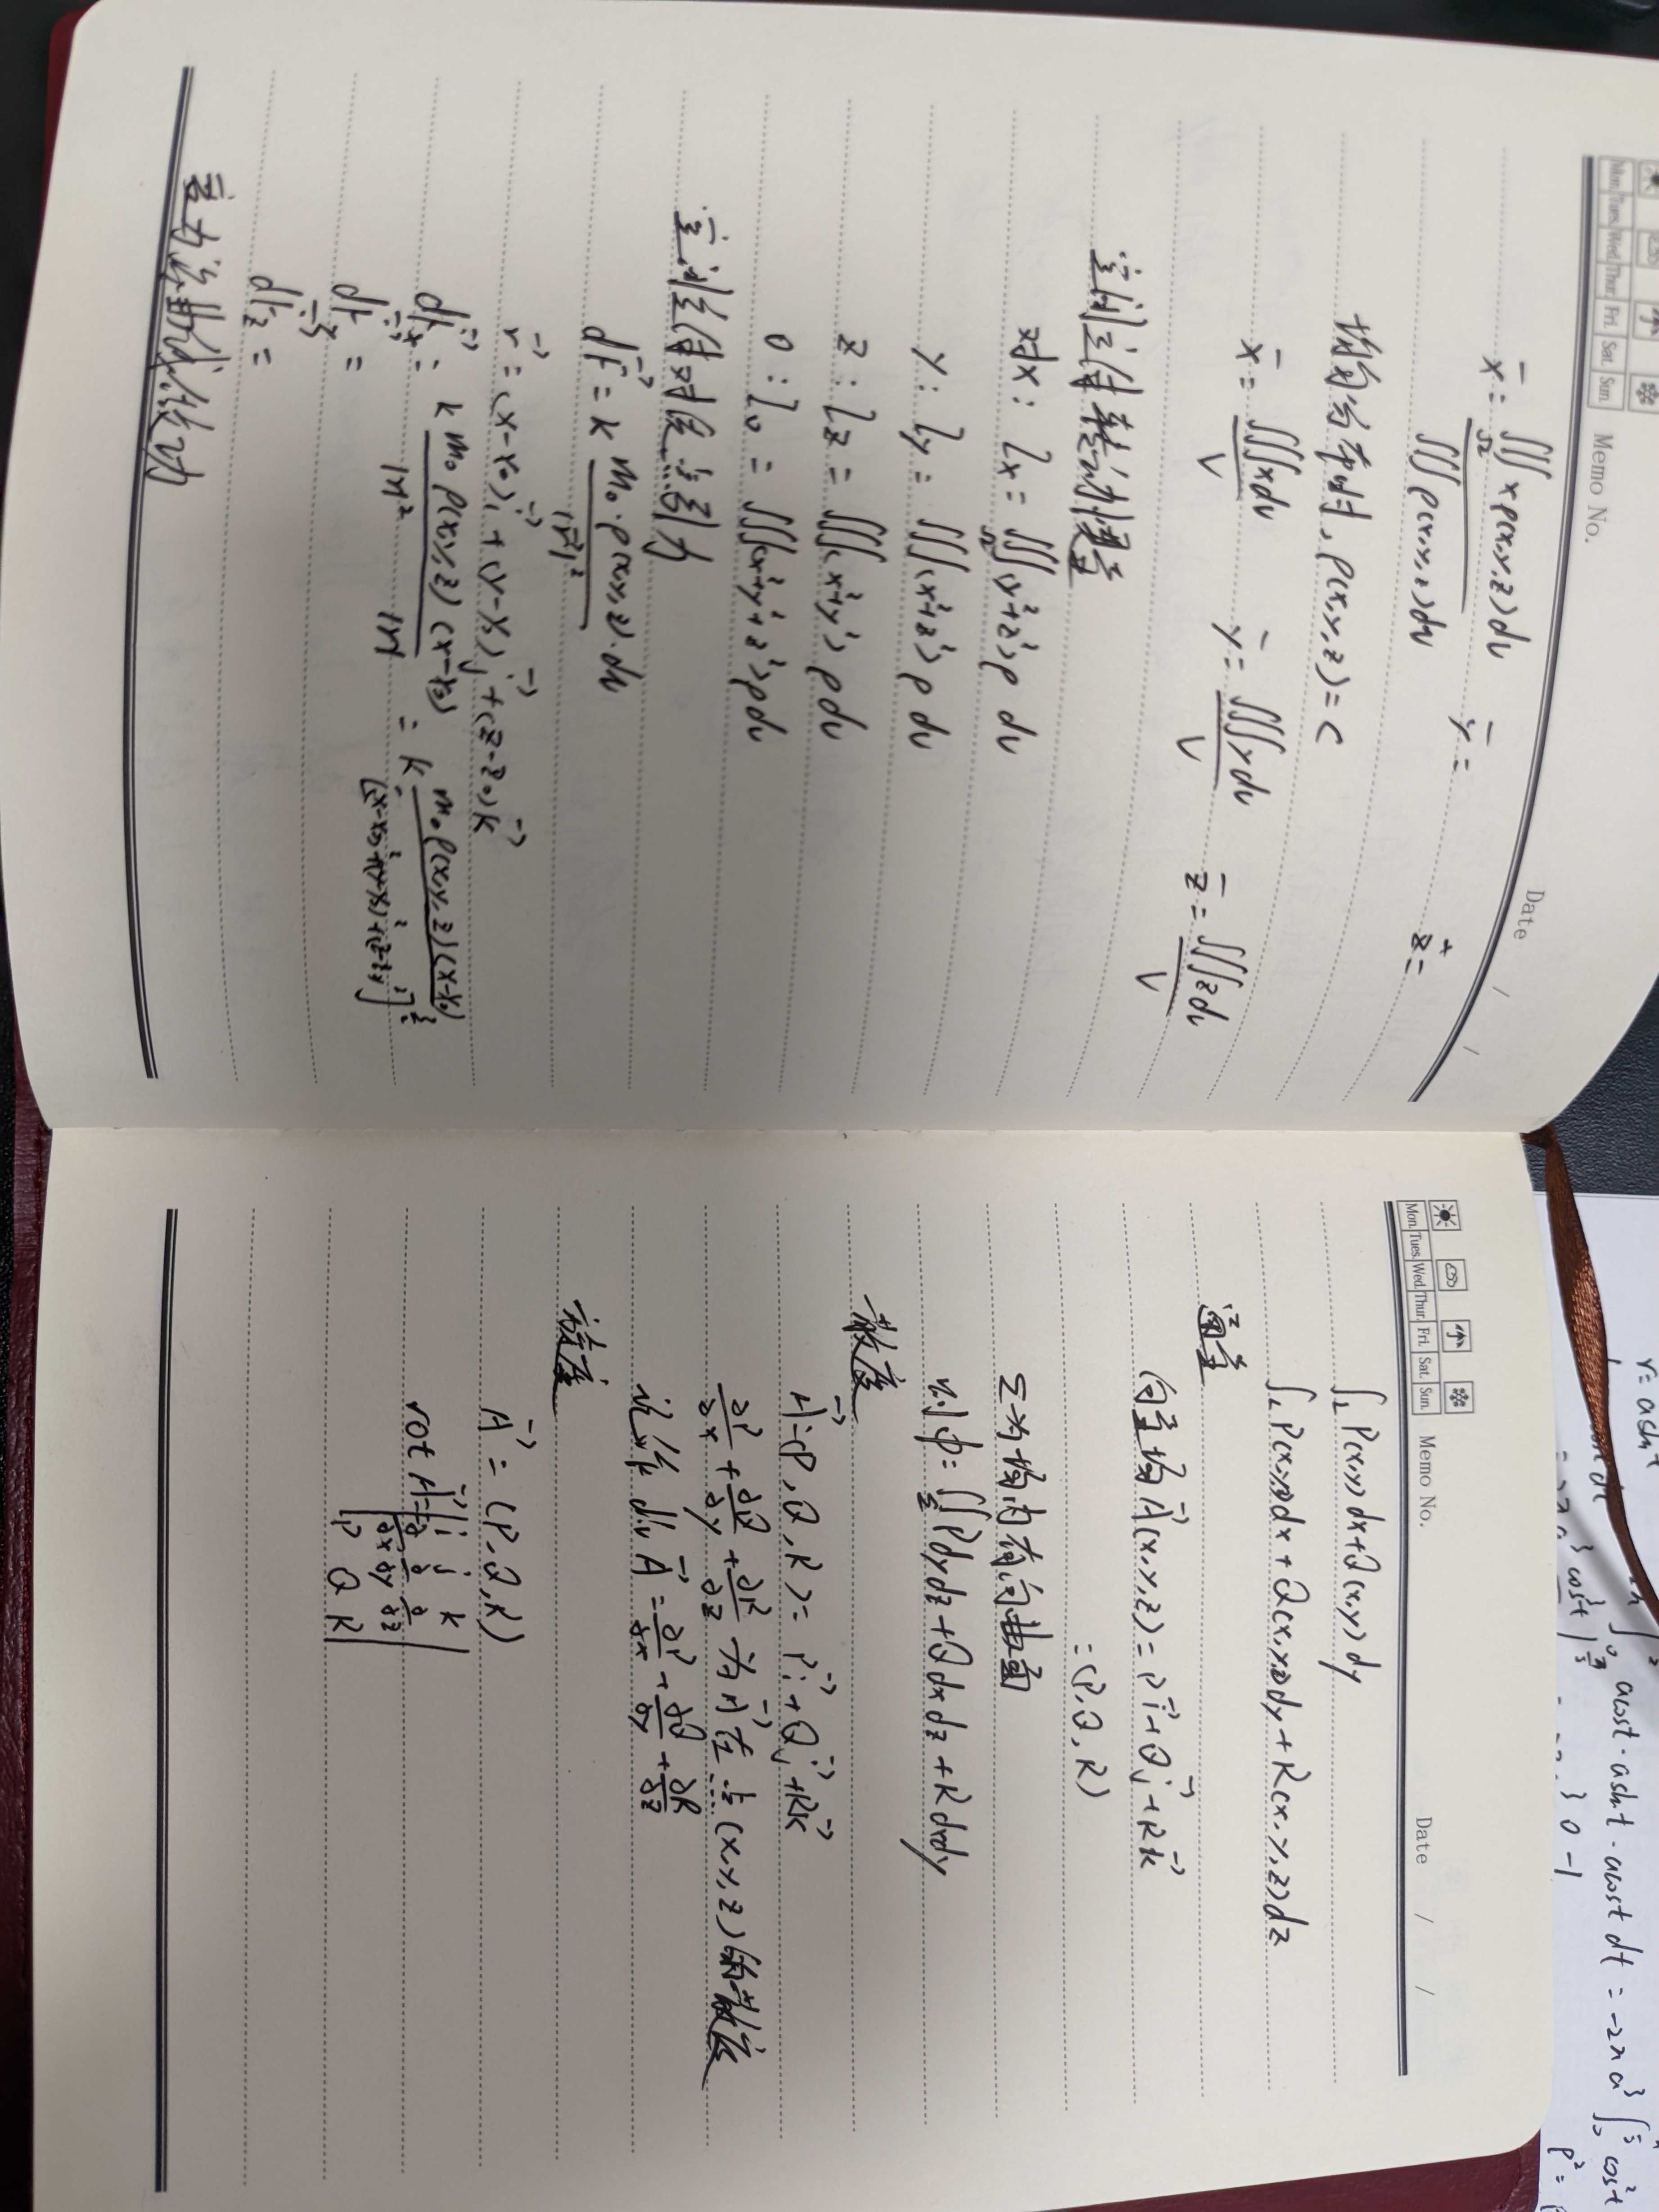 Mon. Tues. Wed. Thur. Fri. Sat. Sun. Memo No. Date / /
x̄ = ∭_Ω xρ(x,y,z)dv / ∭ρ(x,y,z)dv ȳ = z̄ =
均匀分布时, ρ(x,y,z) = C
x̄ = ∭xdv / V ȳ = ∭ydv / V z̄ = ∭zdv / V
空间立体转动惯量
对x: Ix = ∭_Ω (y²+z²)ρ dv
y: Iy = ∭(x²+z²)ρ dv
z: Iz = ∭(x²+y²)ρdv
o: Io = ∭(x²+y²+z²)ρdv
空间立体对质点引力
dF⃗ = k m₀·ρ(x,y,z)·dv / |r⃗|²
r⃗ = (x-x₀)i⃗ + (y-y₀)j⃗ + (z-z₀)k⃗
dFx = k m₀ρ(x,y,z)(x-x₀) / |r|² |r| = k·m₀ρ(x,y,z)(x-x₀) / [(x-x₀)²+(y-y₀)²+(z-z₀)²]^(3/2)
dFy =
dFz =
变力沿曲线做功
Mon. Tues. Wed. Thur. Fri. Sat. Sun. Memo No. Date / /
∫_L P(x,y)dx+Q(x,y)dy
∫_L P(x,y,z)dx+Q(x,y,z)dy+R(x,y,z)dz
通量
向量场A⃗(x,y,z) = Pi⃗+Qj⃗+Rk⃗
= (P,Q,R)
Σ为场内有向曲面
则Φ = ∬_Σ Pdydz+Qdxdz+Rdxdy
散度
A⃗=(P,Q,R) = Pi⃗+Qj⃗+Rk⃗
∂P/∂x + ∂Q/∂y + ∂R/∂z 为A⃗在点(x,y,z)的散度
记作 div A⃗ = ∂P/∂x + ∂Q/∂y + ∂R/∂z
旋度
A⃗ = (P,Q,R)
rot A⃗ = | i j k |
| ∂/∂x ∂/∂y ∂/∂z |
| P Q R |
acost·asint·acost dt = -2πa³
0 -1